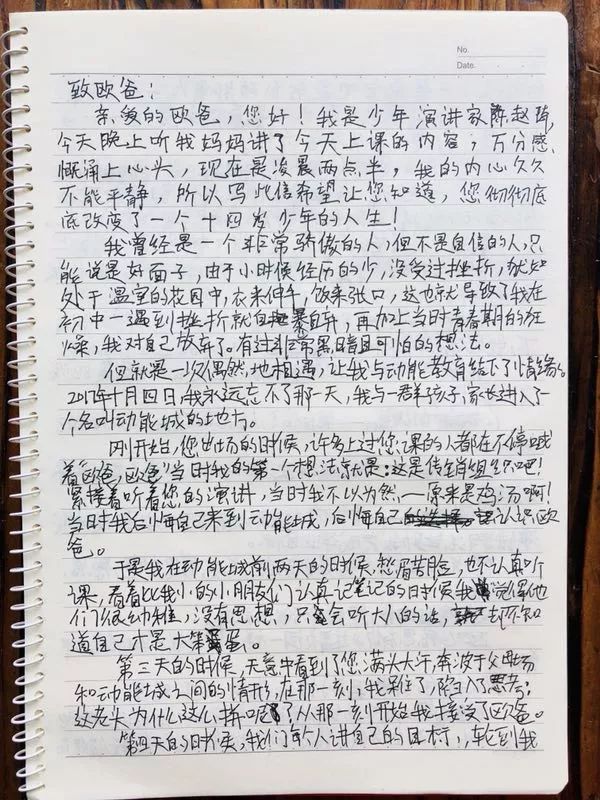 No.
Date.
致欧爸:
亲爱的欧爸,您好!我是少年演讲家陈赵
今天晚上听我妈妈讲了今天上课的内容,万分感
慨涌上心头,现在是凌晨两点半,我的内心久久
不能平静,所以写此信希望让您知道,您彻彻底
底改变了一个十四岁少年的人生!
我曾经是一个非常骄傲的人,但不是自信的人,只
能说是好面子,由于小时候经历的少,没受过挫折,犹如
处于温室的花园中,衣来伸手,饭来张口,这也就导致了我在
初中一遇到挫折就自暴自弃,再加上当时青春期的狂
燥,我对自己放弃了。有过非常黑暗且可怕的想法。
但就是一次偶然地相遇,让我与动能教育结下了情缘。
2017年十月四日,我永远忘不了那一天,我与一群孩子,家长进入了一
个名叫动能城的地方。
刚开始,您出场的时候,许多上过您课的人都在不停喊
着“欧爸,欧爸”当时我的第一个想法就是:这是传销组织吧!
紧接着听着您的演讲,当时我不以为然,——原来是鸡汤啊!
当时我后悔自己来到动能城,后悔自己认识欧
爸。
于是我在动能城前两天的时候,愁眉苦脸,也不认真听
课,看着比我小的小朋友们认真记笔记的时候我觉得他
们很幼稚,没有思想,只会听大人的话,却不知
道自己才是大笨蛋。
第三天的时候,无意中看到了您满头大汗,奔波于父母场
和动能城之间的情形,在那一刻,我呆住了,陷入了思考:
这老头为什么这么拼呢?从那一刻开始我接受了欧爸。
第四天的时候,我们每个人讲自己的目标,轮到我